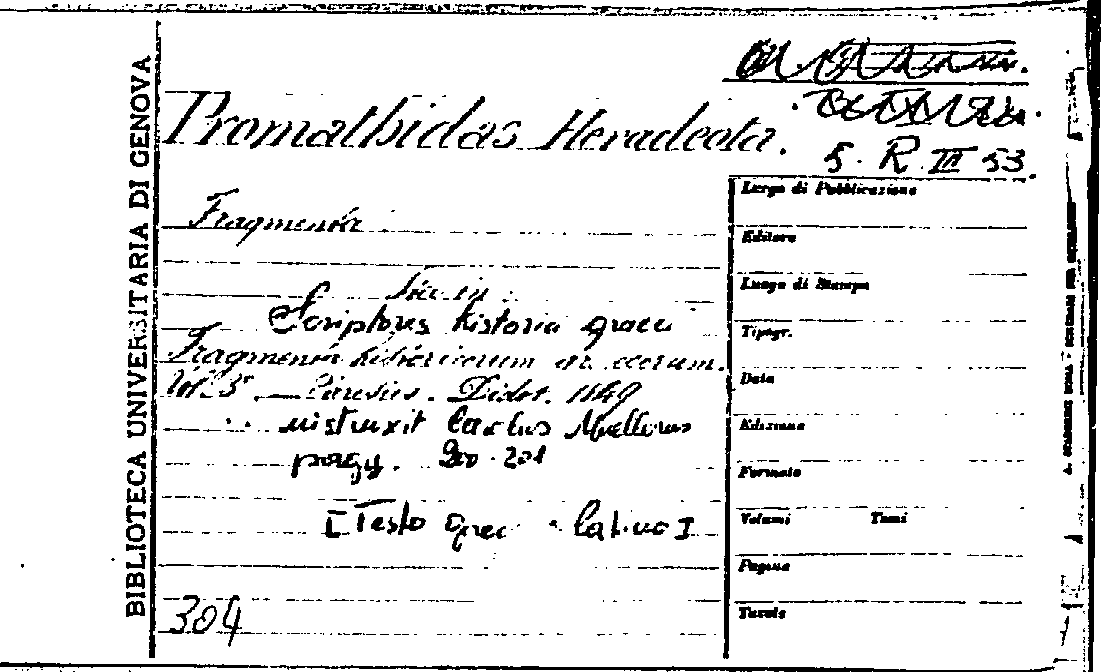 BIBLIOTECA UNIVERSITARIA DI GENOVA
Promathidas Heracleota.
5. R. III 53.
Fragmenta
Sta in:
Scriptores historia graeci
Fragmenta historicorum graecorum.
Vol. 3° — Parisiis. Didot. 1849
instruxit Carolus Mullerus
pagg. 200-201
[Testo greco - latino]
304
Luogo di Pubblicazione
Editore
Luogo di Stampa
Tipogr.
Data
Edizione
Formato
Volumi Tomi
Pagine
Tavole